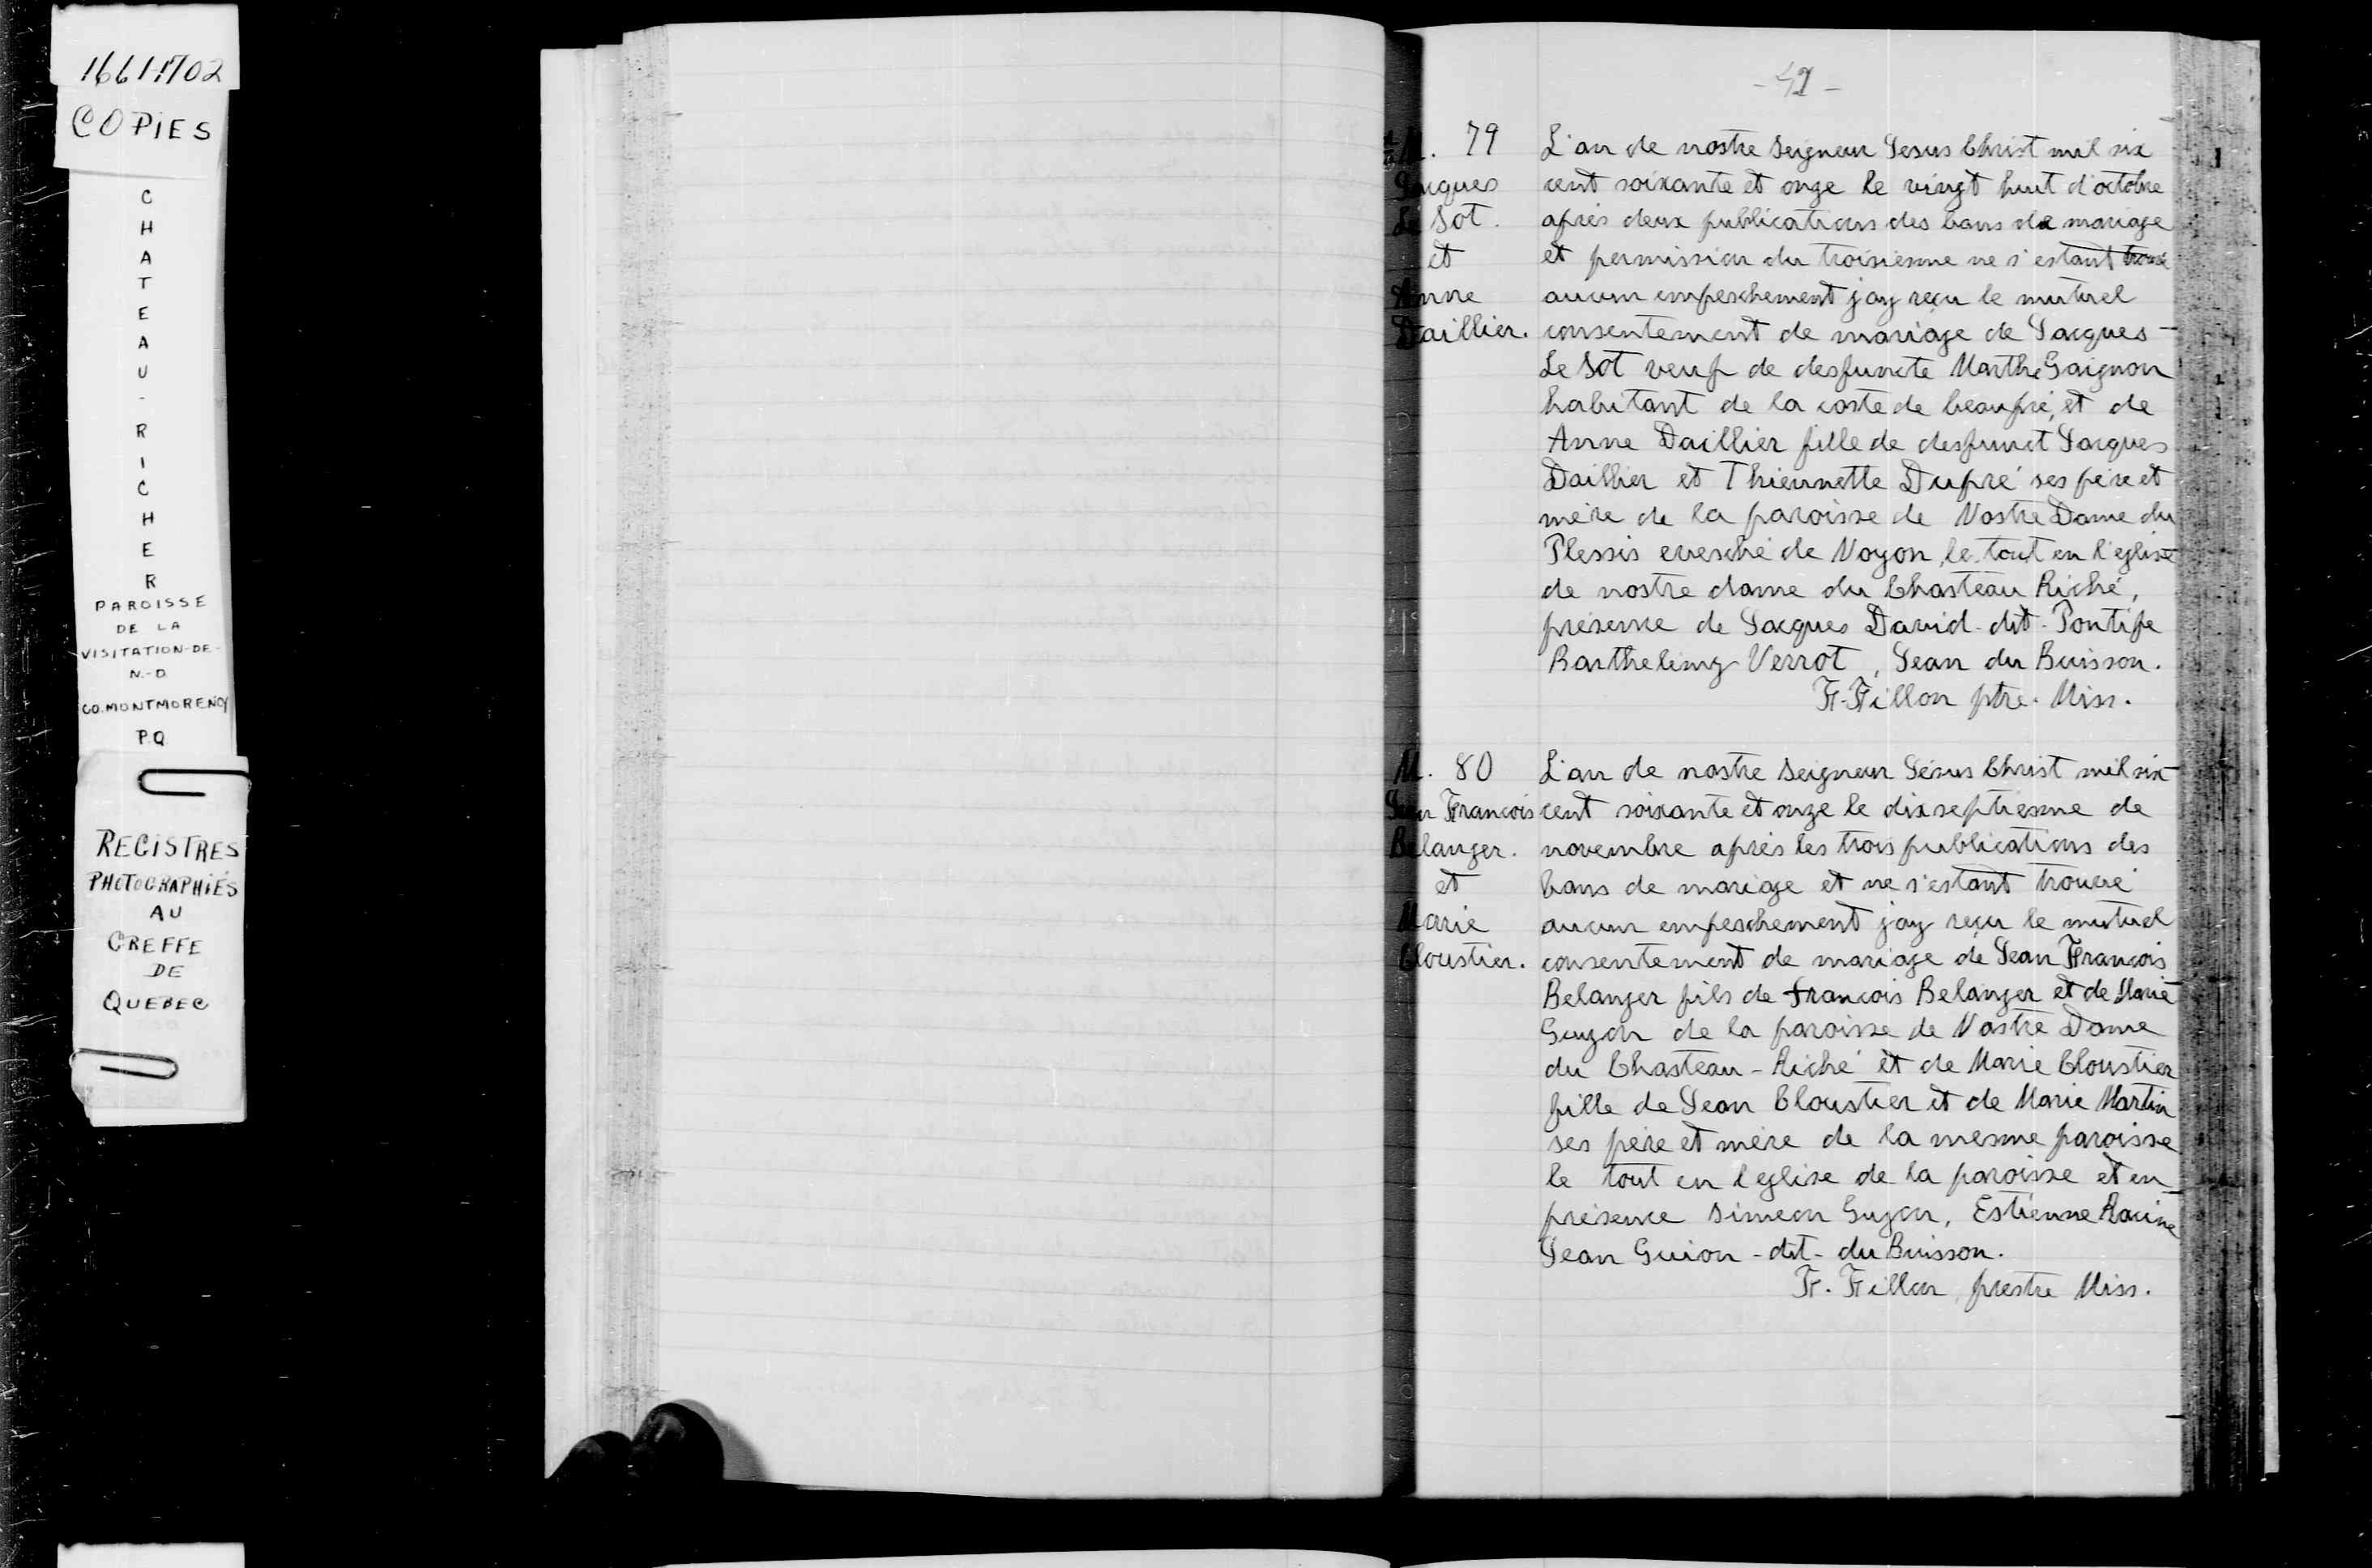 1661-1702
COPIES
CHATEAU-RICHER
PAROISSE
DE LA
VISITATION-DE-
N.-D
CO. MONTMORENCY
P.Q
REGISTRES
PHOTOGRAPHIÉS
AU
GREFFE
DE
QUEBEC
M. 79
Jacques
Le Sot.
et
Anne
Daillier.
L'an de nostre Seigneur Jesus Christ mil six
cent soixante et onze le vingt huit d'octobre
après deux publications des bans de mariage
et permission du troisiesme ne s'estant trouvé
aucun empeschement j'ay reçu le mutuel
consentement de mariage de Jacques
Le Sot veuf de desfuncte Marthe Gaignon
habitant de la coste de beaupré, et de
Anne Daillier fille de desfunct Jacques
Daillier et Thiennette Dupré ses père et
mère de la paroisse de Nostre Dame du
Plessis evesché de Noyon, le tout en l'eglise
de nostre dame du Chasteau Riché,
présence de Jacques David-dit-Pontife
Barthelimy Verrot, Jean du Buisson.
F. Fillon ptre. Miss.
M. 80
Jean François
Belanger.
et
Marie
Cloustier.
L'an de nostre Seigneur Jésus Christ mil six
cent soixante et onze le dix septiesme de
novembre après les trois publications des
bans de mariage et ne s'estant trouvé
aucun empeschement j'ay reçu le mutuel
consentement de mariage de Jean François
Belanger fils de François Belanger et de Marie
Guyon de la paroisse de Nostre Dame
du Chasteau-Riché et de Marie Cloustier
fille de Jean Cloustier et de Marie Martin
ses père et mère de la mesme paroisse
le tout en l'eglise de la paroisse et en
présence Simeon Guyon, Estienne Racine
Jean Guion-dit-du Buisson.
F. Fillon, prestre Miss.